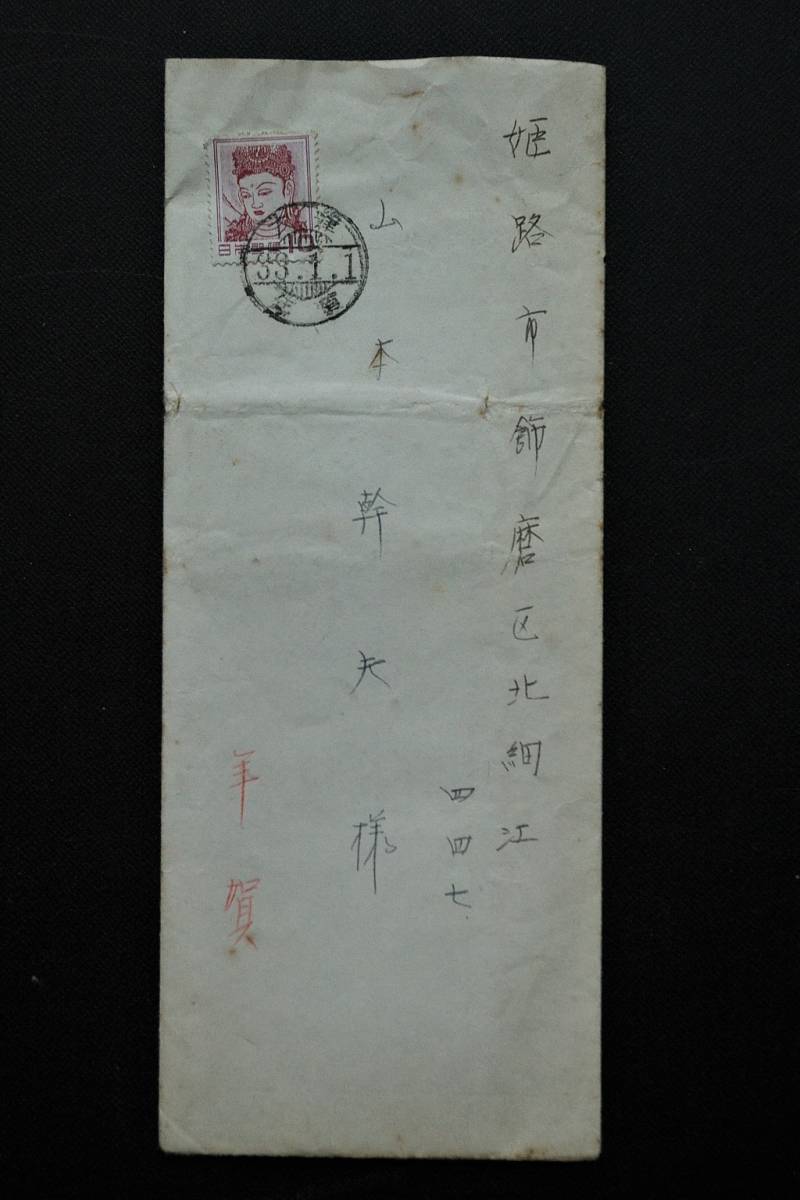 姫路市飾磨区北細江
四四七
山本幹夫様
年賀
日本郵便 10
33.1.1